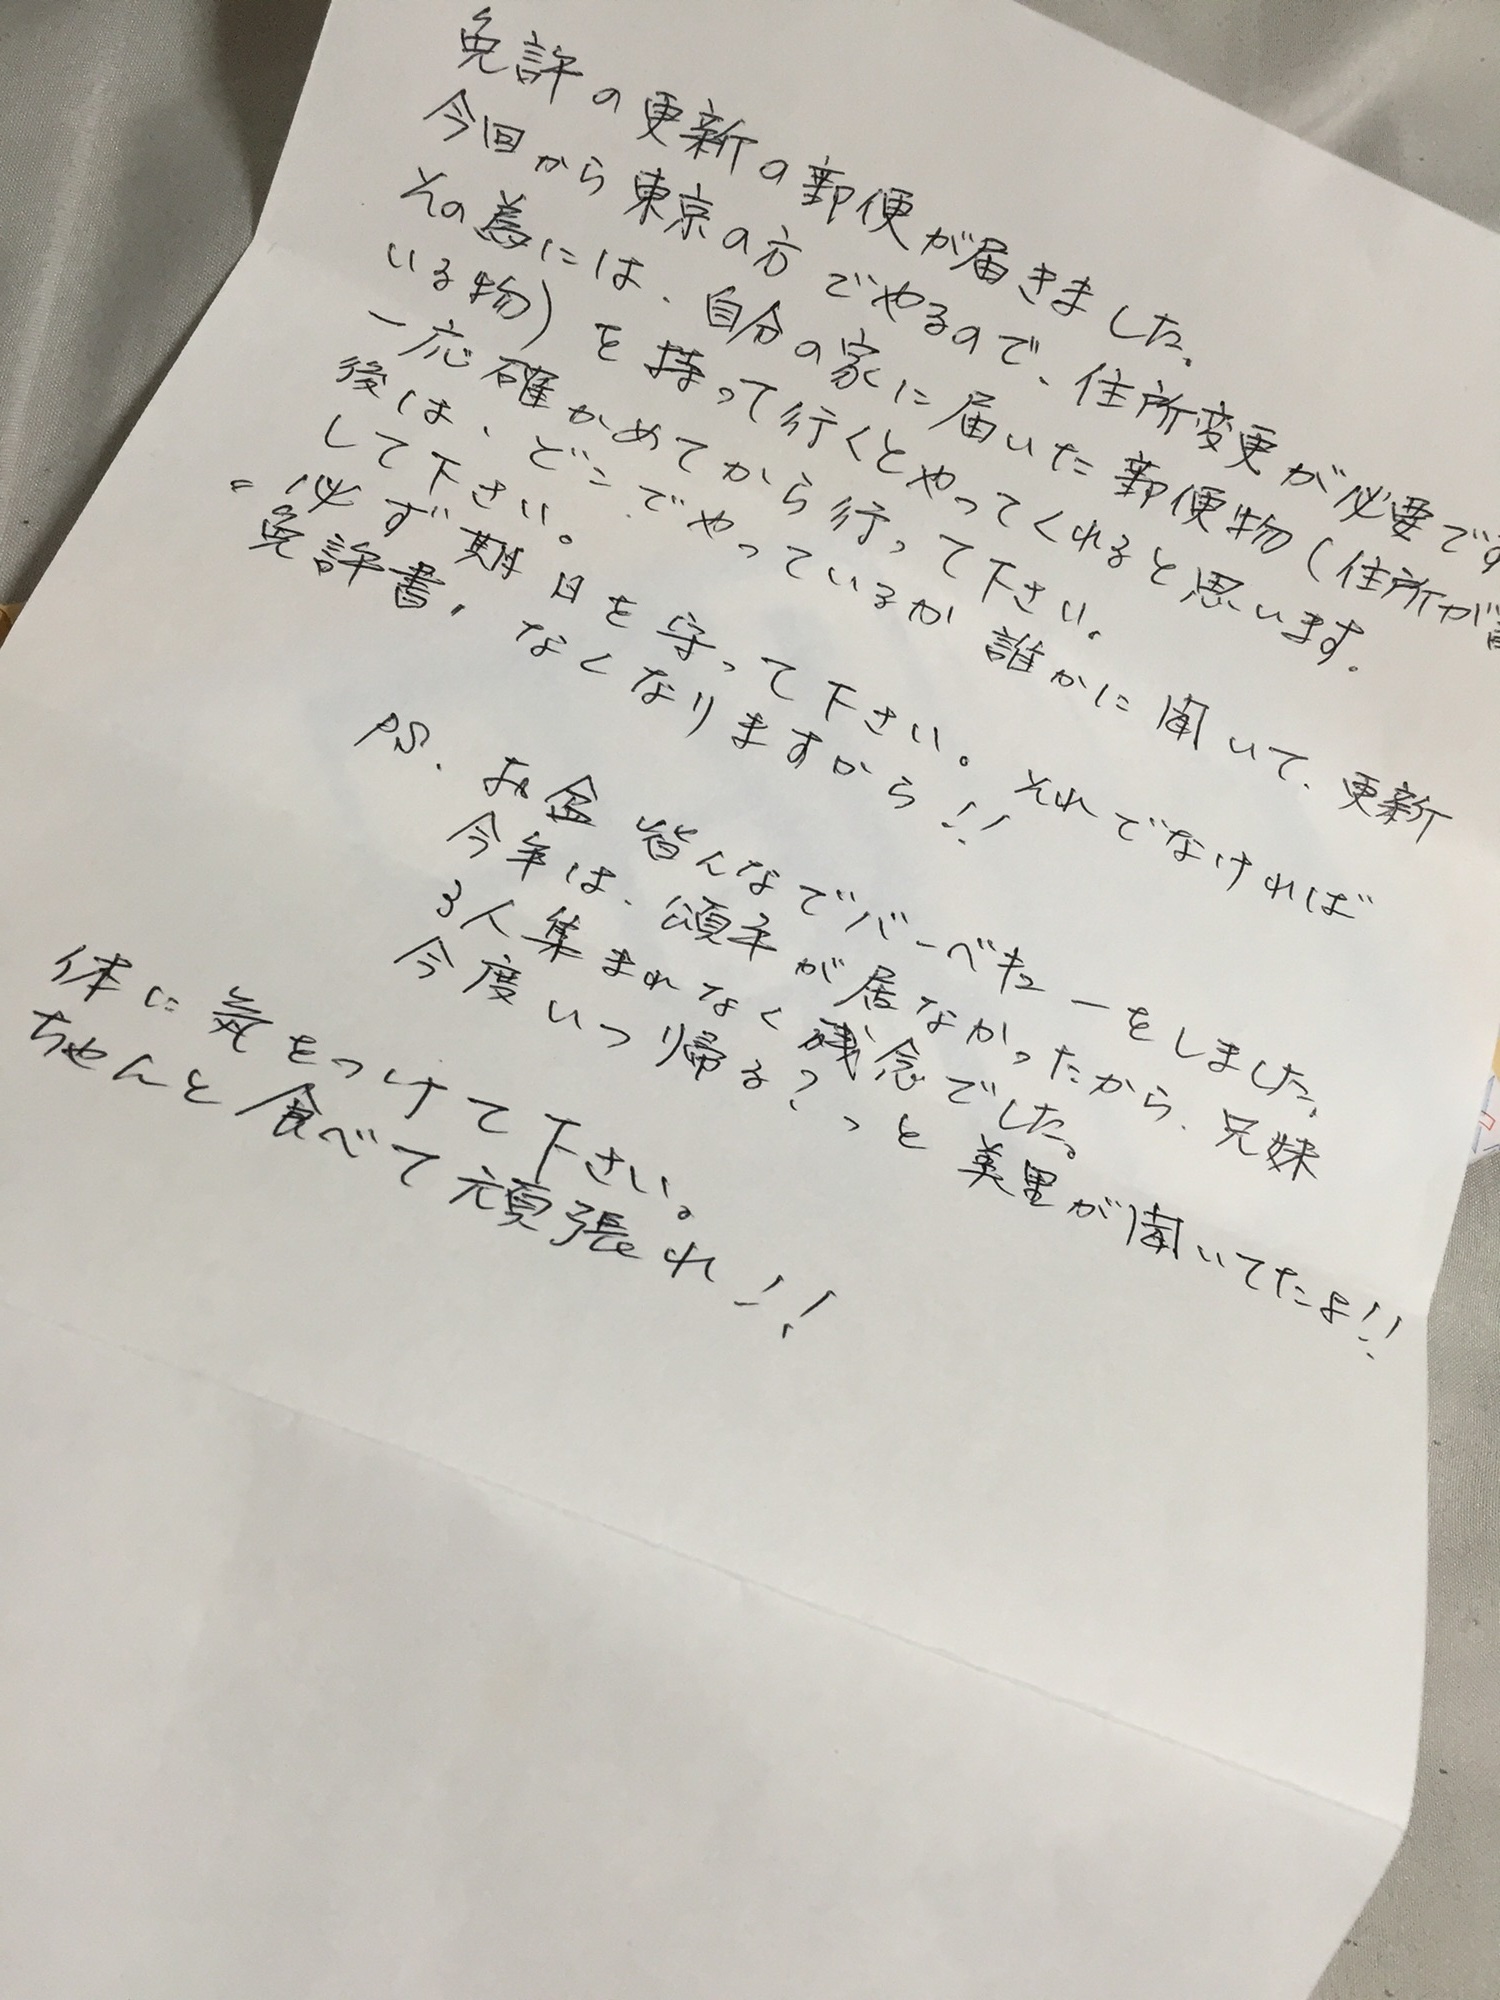 免許の更新の郵便が届きました。
今回から東京の方でやるので、住所変更が必要です
その為には、自分の家に届いた郵便物(住所が
いる物)を持って行くとやってくれると思います。
一応確かめてから行って下さい。
後は、どこでやっているか誰かに聞いて、更新
して下さい。
必ず期日を守って下さい。それでなければ
"免許書"なくなりますから!!
PS. お盆皆んなでバーベキューをしました。
今年は、頌平が居なかったから、兄妹
3人集まれなく残念でした。
今度いつ帰る?っと美里が聞いてたよ!!
体に気をつけて下さい。
ちゃんと食べて頑張れ!!